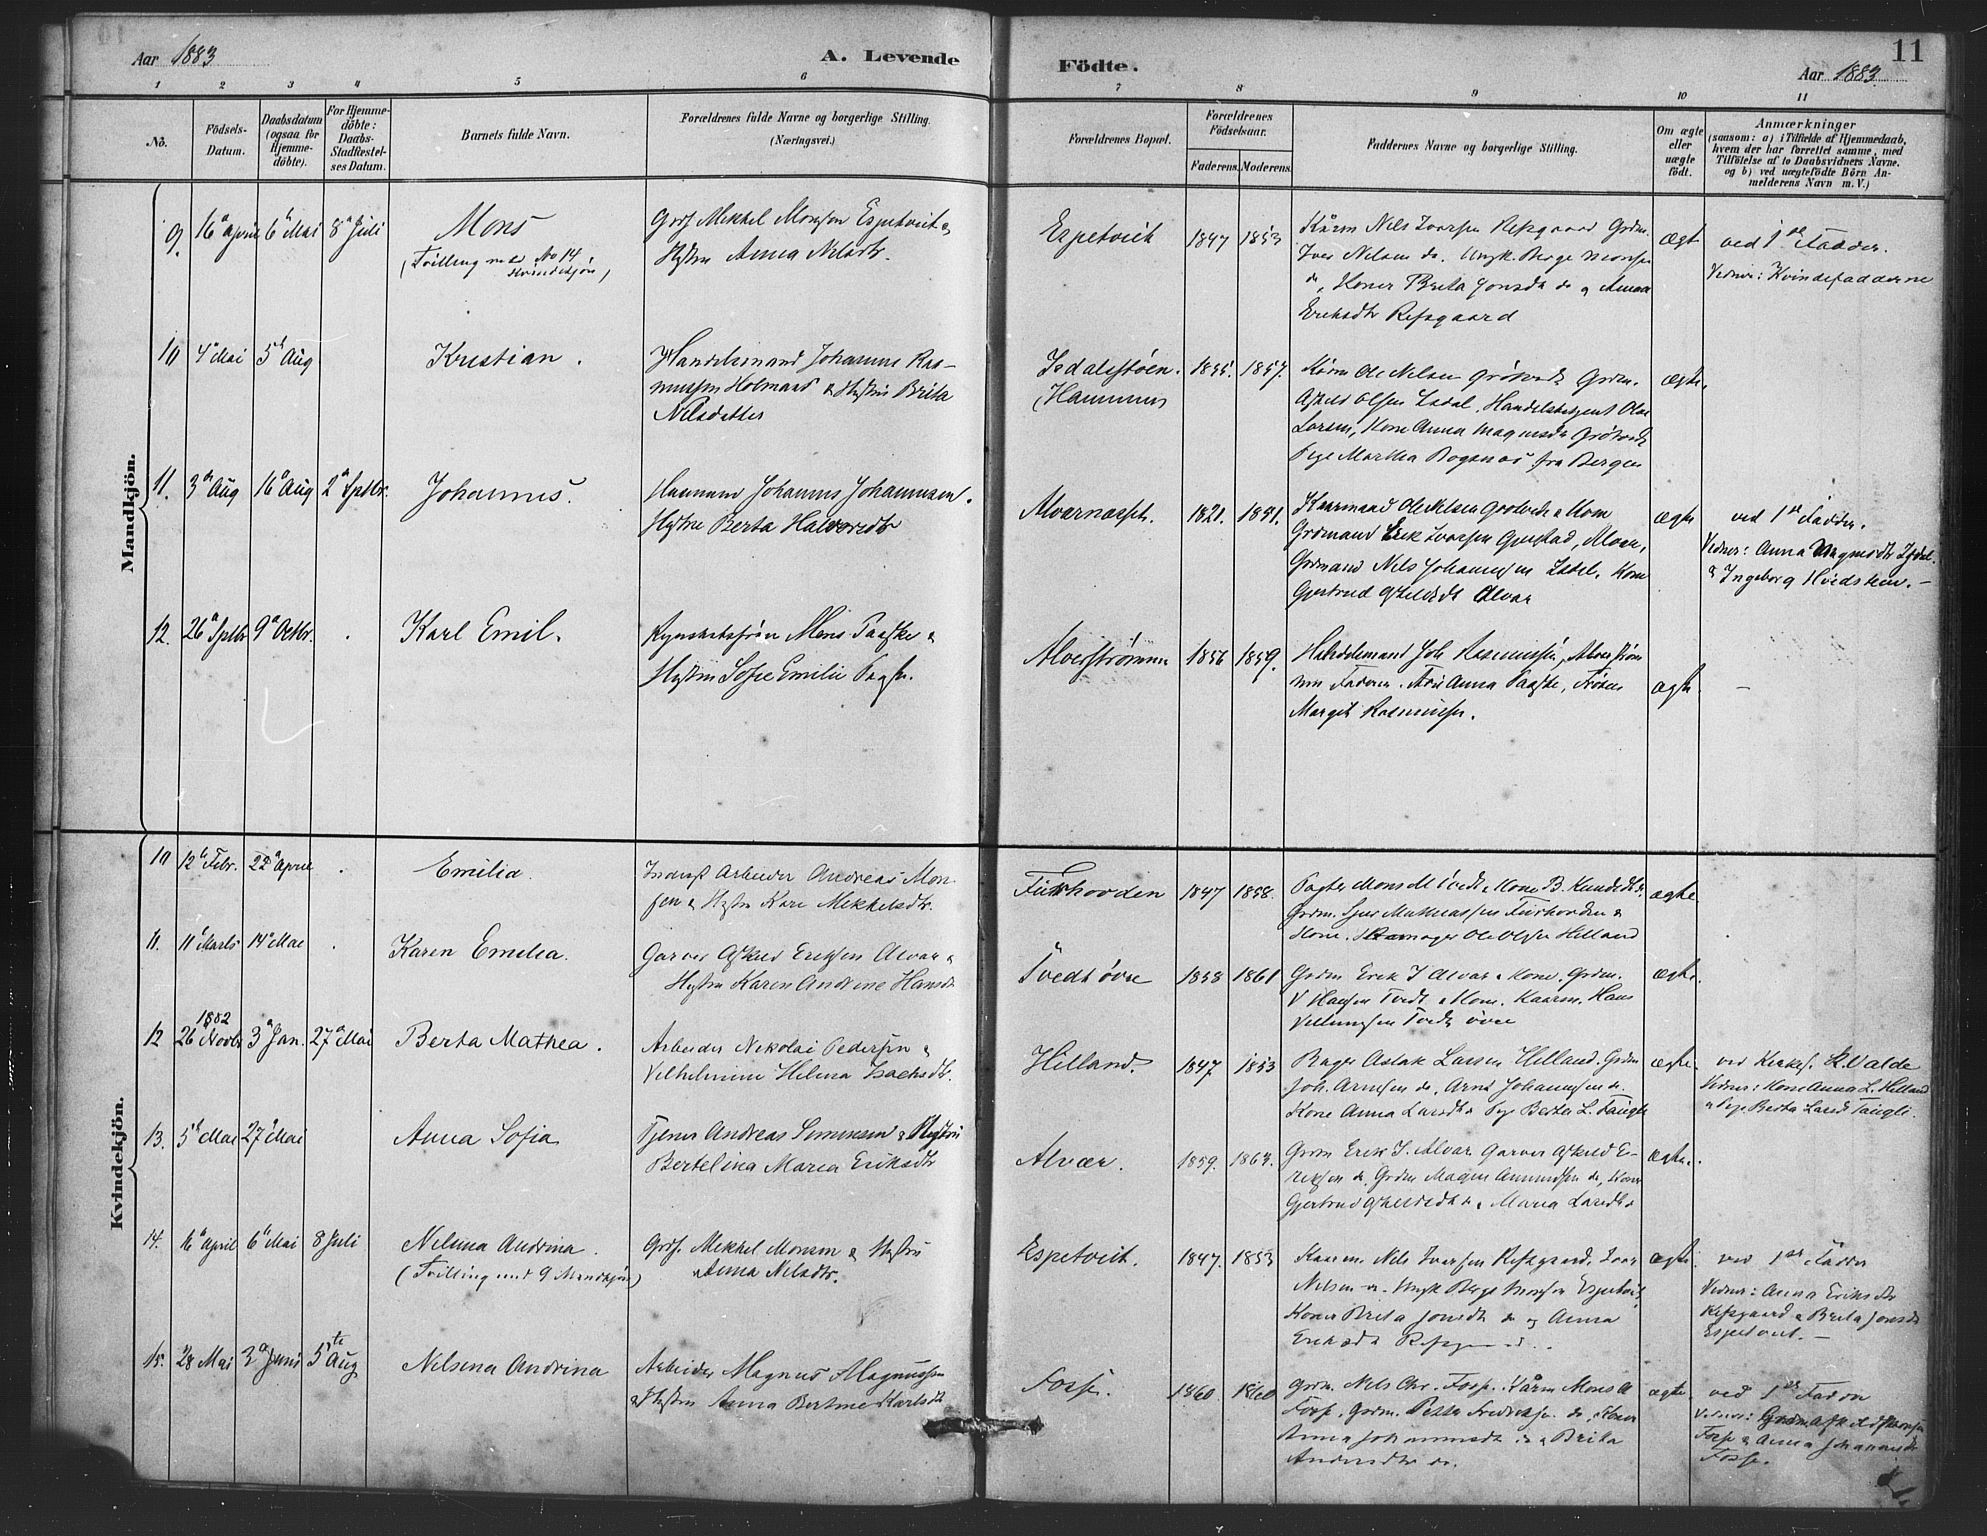 11
Aar 1883
A. Levende
Födte.
Aar 1883
1 2 3 4 5 6 7 8 9 10 11
No.
Födsels-
Datum.
Daabsdatum
(ogsaa for
Hjemme-
döbte).
For Hjemme-
döbte:
Daabs-
Stadfæstel-
ses Datum.
Barnets fulde Navn.
Forældrenes fulde Navne og borgerlige Stilling.
(Næringsvei.)
Forældrenes Bopæl.
Forældrenes
Födselsaar.
Faderens.
Moderens.
Faddernes Navne og borgerlige Stilling.
Om ægte
eller
uægte
födt.
Anmærkninger
(saasom: a) i Tilfælde af Hjemmedaab,
hvem der har forrettet samme, med
Tilföielse af to Daabsvidners Navne,
og b) ved uægtefödte Börn An-
melderens Navn m. V.)
Mandkjön.
9. 16 april 6 Mai 8 Juli
Mons
(Tvilling med No 14
Kvindekjön)
Mikkel Monsen Espetveit &
Anna Nilsdtr.
Espetveit
1847 1853
Nils Ivarsen Refsgaard
Iver Nilsen do. Ungk. Berge Monsen
do, Koner Brita Jonsdtr do og Anna
Eriksdtr Refsgaard
ægt
ved 1ste Fadder.
Vidner: Kvindefadderne
10 4 Mai 5 Aug
Kristian.
Handelsmand Johannes Ras-
mussen Holmaas & Hustru Brita
Nilsdatter
Isdalstøen.
(Hammers
1855. 1857.
Ole Nilsen
Askild Olsen Isdal, Handelsbetjent Olai
Larsen, Kone Anna Magnusdtr
Pige Martha Bognøs fra Bergen
ægte.
11. 3 Aug 16 Aug 2 Septbr.
Johannes.
Husmand Johannes Johannesen.
Hustru Berta Halvorsdtr
Alvarnæset.
1821. 1851.
Kaarmand Ole Nilsen & Kone
Grdmand Erik Ivarsen Gjerstad, Alvær,
Grdmand Nils Johannesen Isdal, Kone
Gjertrud Askildsdtr Alvær
ægte
ved 1ste Fadder.
Vidner: Anna Magnusdtr Isdal.
& Ingeborg Hvidsten. –
12. 26 Septbr 9 Octbr.
Karl Emil.
Mons Paaske &
Hustru Sofie Emilie
Alverstrømmen
1856 1859.
Handelsmand Joh Rasmussen, Alverstrøm
men Faderen. Anna Paaske, Frøken
Margit Rasmussen.
ægte
–
Kvindekjön.
10 12 Febr. 22 April
Emilia.
Arbeider Andreas Mon-
sen & Hustru Kari Mikkelsdtr.
1847 1858.
Mons M Tvedt & Kone B. Knudsdtr.
Mathiassen
Kone, Skomager Ole Olsen Helland
ægte
11. 11 Marts 14 Mai
Karen Emilia.
Garver Askild Eriksen Alvær &
Hustru Karen Andrine Hansdtr
Tvedt øvre
1858 1861
Erik I Alvær & Kone, Grdm.
V Hansen Tvedt & Kone, Kaarm. Hans
Villumsen Tvedt øvre
ægte.
1882
12 26 Novbr 3 Jan. 27 Mai
Berta Mathea.
Arbeider Nikolai Pedersen &
Vilhelmine Helena Isachsdtr.
Helland.
1847 1853
Bager Aslak Larsen Helland. Grdm
Joh. Arnesen do, Arne Johannesen do.
Kone Anna Larsdtr & Pige Berta L.
ægte.
ved Kirkes. K. Valde
Vidner: Kone Anna L. Helland
& Pige Berta Larsdtr
13. 5 Mai 27 Mai
Anna Sofia
Tjener Andreas Simonsen & Hustru
Bertelina Maria Eriksdtr
Alvær.
1859. 1863.
Grdm Erik I. Alvær Garver Askild E-
riksen do. Grdm Magne Amundsen do, Kone
Gjertrud Askildsdtr do & Maria Larsdtr do
ægte.
14. 16 April 6 Mai 8 Juli
Nelina Andrina.
(Tvilling med 9 Mandkjön)
Mikkel Monsen & Hustru
Anna Nilsdtr.
Espetveit.
1847. 1853
Kaarm. Nils Iversen Refsgaard. Iver
Nilsen do. Ungk Berge Monsen Espetveit,
Koner Brita Jonsdtr do og Anna
Eriksdtr Refsgaard.
ægte.
ved 1ste Fadder
Vidner: Anna Eriksdtr
Refsgaard & Brita Jonsdtr
Espetveit. –
15. 28 Mai 3 Juni 5te Aug
Nilsina Andrina
Arbeider Magnus Magnussen
& Hustru Anna Bertine Karlsdtr
Fosse.
1860 1860
Grdm. Nils Chr. Fosse. Kårm Mons A
Fosse, Grdm. Petter Fredriksen do, Kone
Anna Johannesdtr do & Brita
Andersdtr do.
ægte
ved 1ste Fadder
Vidner: Grdm Askild Monsen
Fosse & Anna Johannesdtr
Fosse.